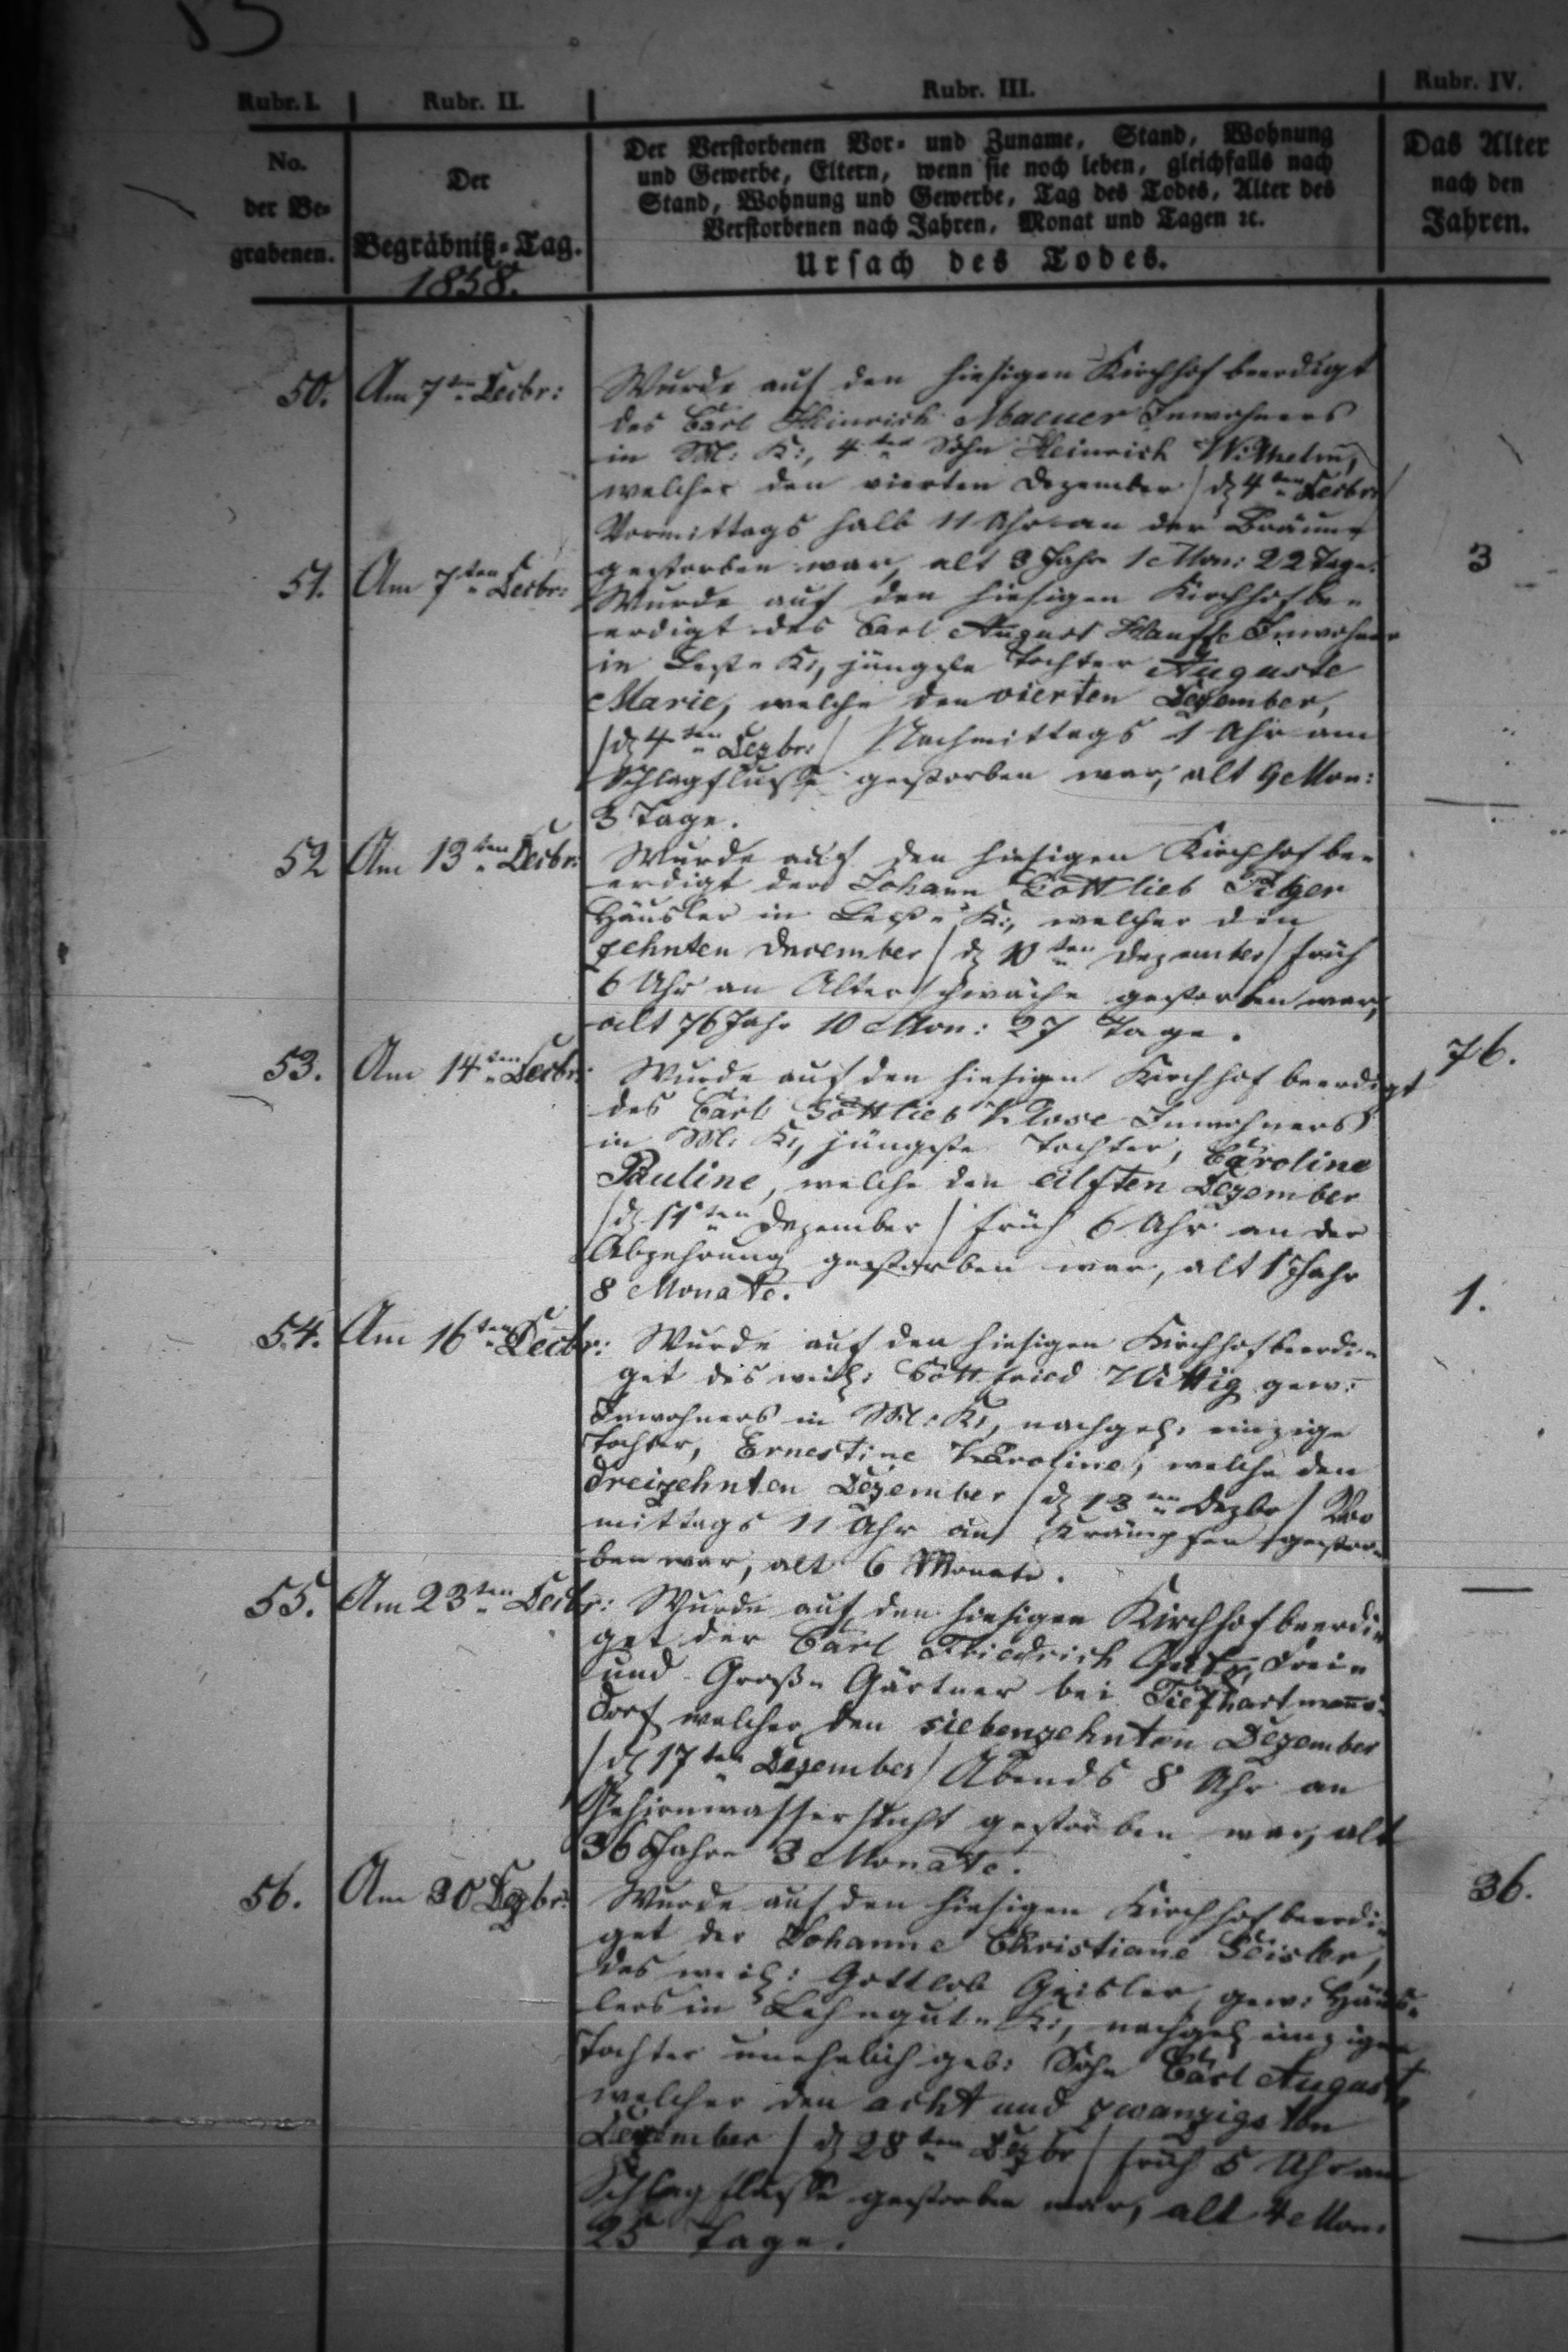 Rubr. I. Rubr. II. Rubr. III. Rubr. IV.
No.
der Be-
grabenen.
Der
Begräbniß-Tag.
1858.
Der Verstorbenen Vor- und Zuname, Stand, Wohnung
und Gewerbe, Eltern, wenn sie noch leben, gleichfalls nach
Stand, Wohnung und Gewerbe, Tag des Todes, Alter des
Verstorbenen nach Jahren, Monat und Tagen ꝛc.
Ursach des Todes.
Das Alter
nach den
Jahren.
50. Am 7ten Decbr: Wurde auf den hiesigen Kirchhof beerdigt
des Carl Heinrich Inwohners
in K:, 4ten Sohn Heinrich Wilhelm,
welcher den vierten Dezember / d 4ten Decbr: /
Vormittags halb 11 Uhr an der Bräune
gestorben war, alt 3 Jahr 1 Mon: 22 Tage. 3
51. Am 7ten Decbr: Wurde auf den hiesigen Kirchhof be-
erdigt des Carl August Inwohner
in K:, jüngste Tochter Auguste
Marie, welche den vierten Dezember,
/ d 4ten Dezbr: / Nachmittags 1 Uhr am
Schlagflusse gestorben war, alt 9 Mon:
3 Tage.
52 Am 13ten Decbr: Wurde auf den hiesigen Kirchhof be-
erdigt der Johann Gottlieb
Häusler in K:, welcher den
zehnten December / d 10ten Dezember / früh
6 Uhr an Altersschwäche gestorben war,
alt 76 Jahr 10 Mon: 27 Tage. 76.
53. Am 14ten Decbr: Wurde auf den hiesigen Kirchhof beerdigt
des Carl Gottlieb Klose Inwohners
in K:, jüngste Tochter, Caroline
Pauline, welche den eilften Dezember
/ d 11ten Dezember / früh 6 Uhr an der
Abzehrung gestorben war, alt 1 Jahr
8 Monate. 1.
54. Am 16ten Decbr: Wurde auf den hiesigen Kirchhof beerdi-
get des weil: Gottfried Wittig gew:
Inwohners in K:, nachgel: einzige
Tochter, Ernestine Karoline, welche den
dreizehnten Dezember / d 13ten Dezbr / Vor
mittags 11 Uhr an Krämpfen gestor-
ben war, alt 6 Monate.
55. Am 23ten Decbr: Wurde auf den hiesigen Kirchhof beerdi-
get der Carl Friedrich Frei-
und Große Gärtner bei Tiefhartmanns-
dorf welcher den siebenzehnten Dezember
/ d 17ten Dezember / Abends 8 Uhr an
Gehirnwassersucht gestorben war, alt
36 Jahre 3 Monate. 36.
56. Am 30 Dezbr: Wurde auf den hiesigen Kirchhof beerdi-
get der Johanne Christiane Geisler,
des weil: Gottlob Geisler, gew: Häus-
lers in Lehngut K:, nachgel einzigen
Tochter unehelich geb: Sohn Carl August,
welcher den acht und zwanzigsten
Dezember / d 28ten Dezbr / früh 5 Uhr am
Schlagflusse gestorben war, alt 4 Mon:
25 Tage.